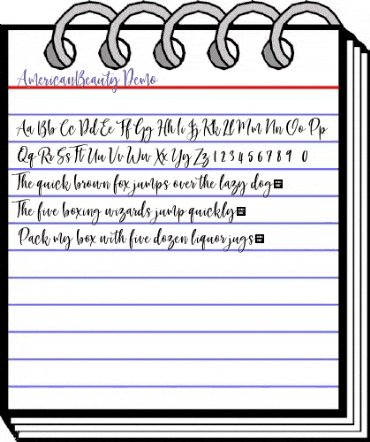 AmericanBeauty Demo
Aa Bb Cc Dd Ee Ff Gg Hh Ii Jj Kk Ll Mm Nn Oo Pp
Qq Rr Ss Tt Uu Vv Ww Xx Yy Zz 1 2 3 4 5 6 7 8 9 0
The quick brown fox jumps over the lazy dog
The five boxing wizards jump quickly
Pack my box with five dozen liquor jugs